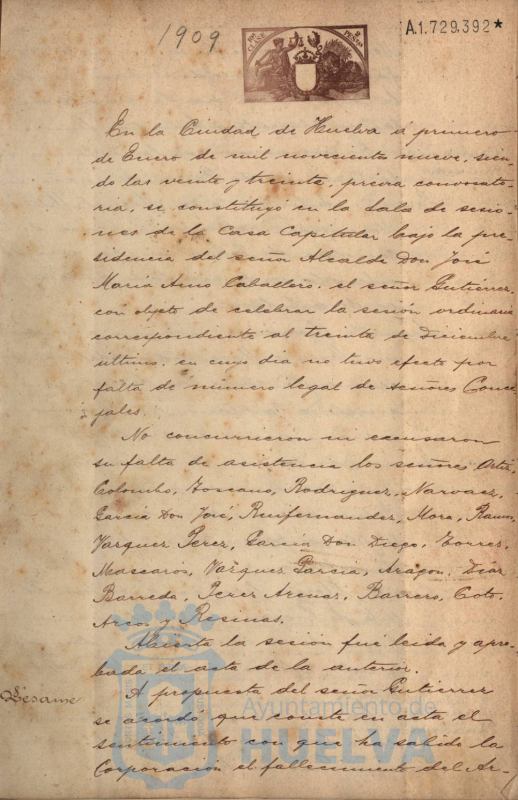 1909
10ª CLASE 2 PESETAS
A.1.729.392*
En la Ciudad de Huelva á primero
de Enero de mil novecientos nueve, sien-
do las veinte y treinta, previa convocato-
ria, se constituyó en la Sala de sesio-
nes de la Casa Capitular bajo la pre-
sidencia del señor Alcalde Don José
Maria Amo Caballero, el señor Gutierrez,
con objeto de celebrar la sesión ordinaria
correspondiente al treinta de Diciembre
último, en cuyo dia no tuvo efecto por
falta de número legal de señores Conce-
jales.
No concurrieron ni excusaron
su falta de asistencia los señores Ortiz,
Colombo, Toscano, Rodriguez, Narvaez,
Garcia Don José, Ruifernandez, Mora, Ramos,
Vazquez Perez, Garcia Don Diego, Torres,
Mascarós, Vazquez Garcia, Aragón, Diaz
Barreda, Perez Arenas, Barrero, Coto,
Arcos y Resinas.
Abierta la sesión fué leida y apro-
bada el acta de la anterior.
Pésame
A propuesta del señor Gutierrez
se acordó que conste en acta el
sentimiento con que ha sabido la
Corporación el fallecimiento del Ar-
Ayuntamiento de
HUELVA